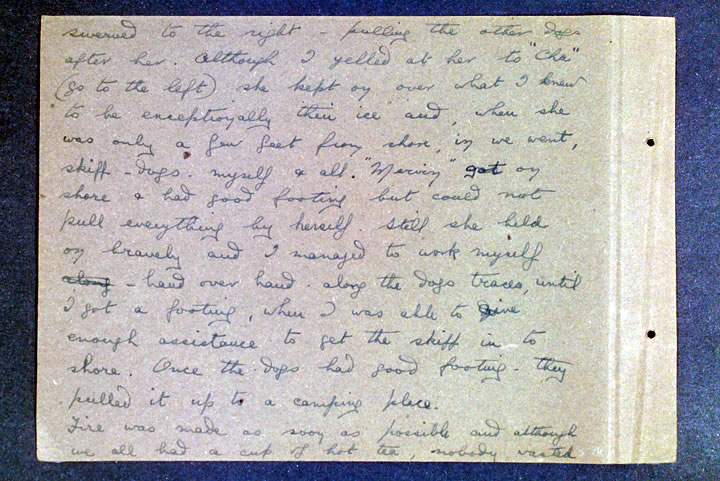 swerved to the right - pulling the other dogs
after her. Although I yelled at her to "Cha"
(go to the left) she kept on over what I knew
to be exceptionally thin ice and, when she
was only a few feet from shore, in we went,
skiff - dogs - myself & all. "Mervin" got on
shore & had good footing but could not
pull everything by herself. Still she held
on bravely and I managed to work myself
along - hand over hand - along the dogs traces, until
I got a footing, when I was able to give
enough assistance to get the skiff in to
shore. Once the dogs had good footing - they
pulled it up to a camping place.
Fire was made as soon as possible and although
we all had a cup of hot tea, nobody wasted